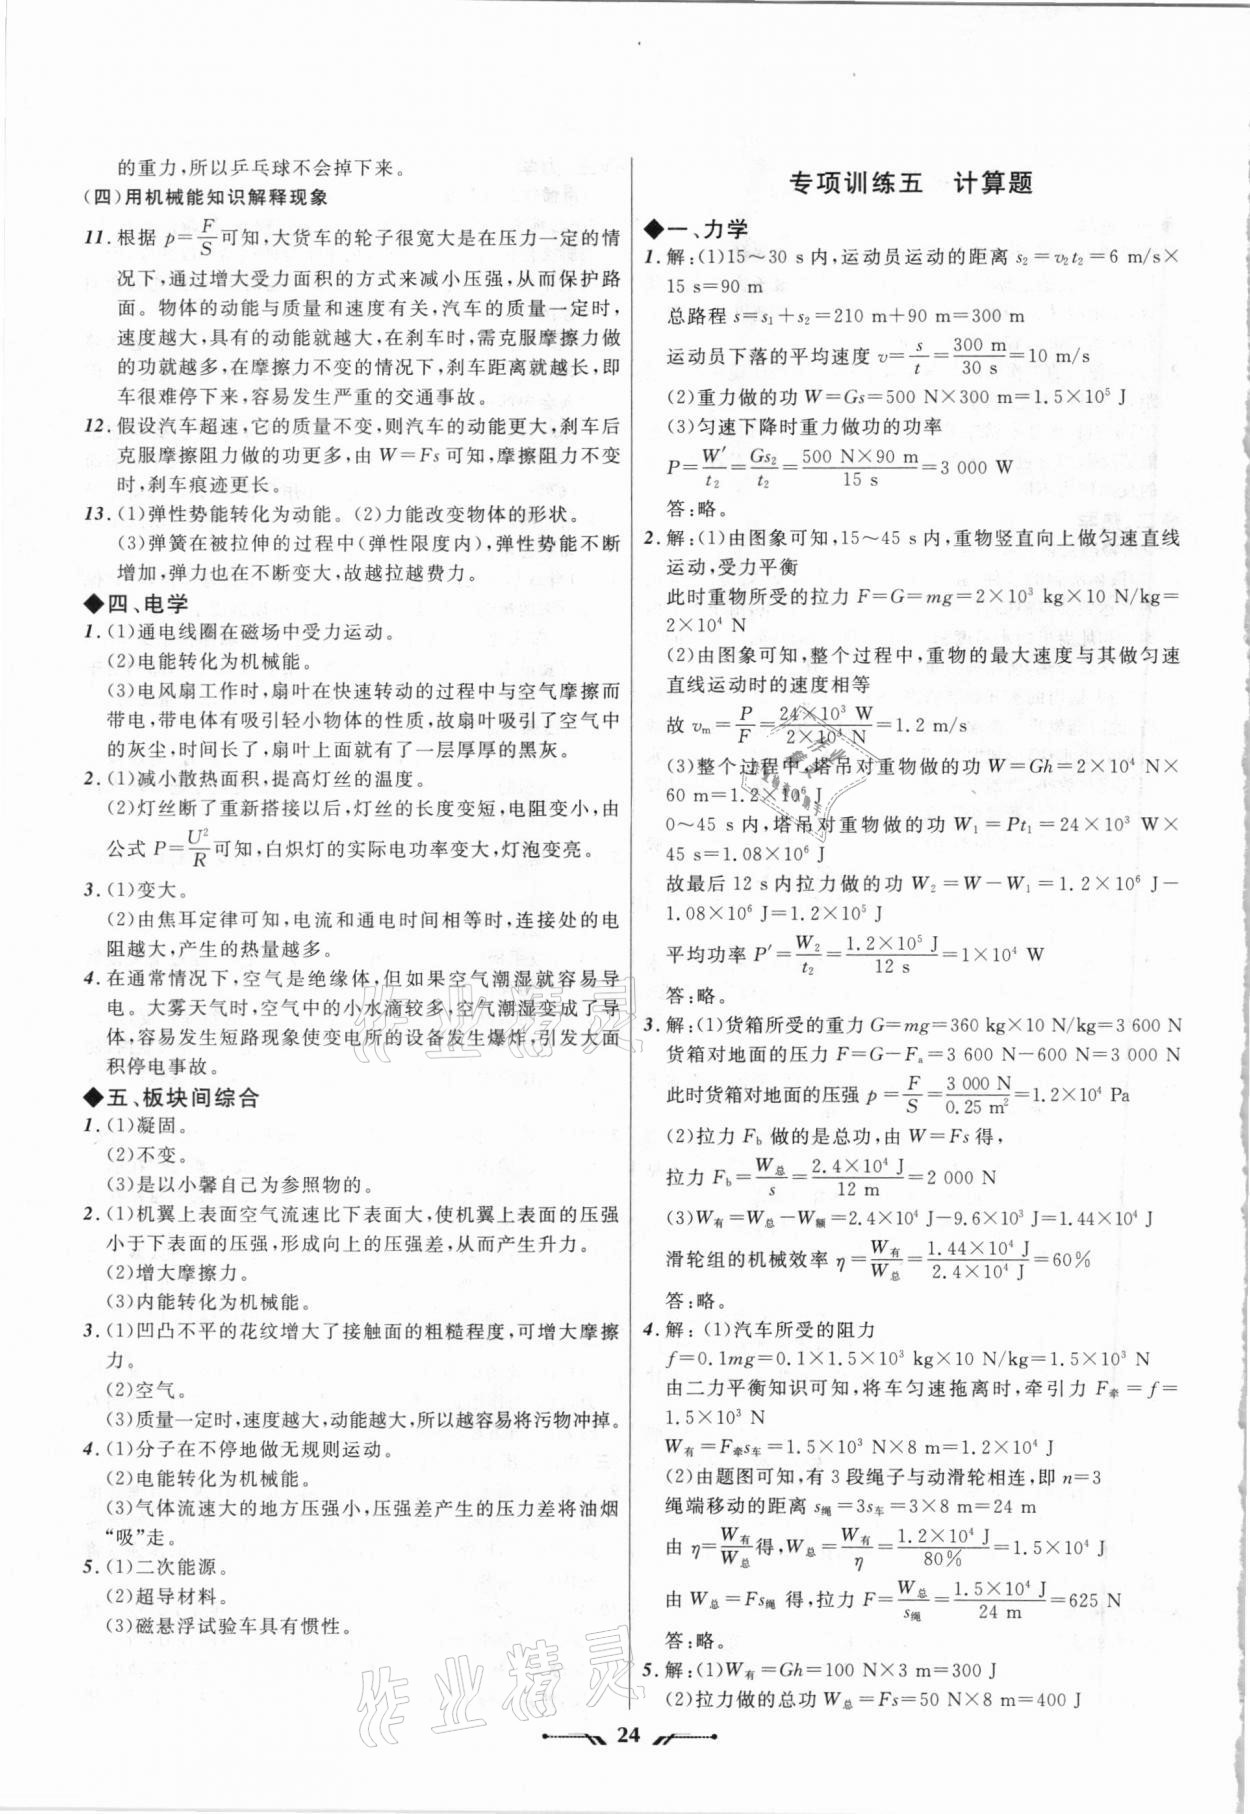 的重力,所以乒乓球不会掉下来。
(四)用机械能知识解释现象
11. 根据 p=F/S 可知,大货车的轮子很宽大是在压力一定的情
况下,通过增大受力面积的方式来减小压强,从而保护路
面。物体的动能与质量和速度有关,汽车的质量一定时,
速度越大,具有的动能就越大,在刹车时,需克服摩擦力做
的功就越多,在摩擦力不变的情况下,刹车距离就越长,即
车很难停下来,容易发生严重的交通事故。
12. 假设汽车超速,它的质量不变,则汽车的动能更大,刹车后
克服摩擦阻力做的功更多,由 W=Fs 可知,摩擦阻力不变
时,刹车痕迹更长。
13. (1)弹性势能转化为动能。(2)力能改变物体的形状。
(3)弹簧在被拉伸的过程中(弹性限度内),弹性势能不断
增加,弹力也在不断变大,故越拉越费力。
◆四、电学
1. (1)通电线圈在磁场中受力运动。
(2)电能转化为机械能。
(3)电风扇工作时,扇叶在快速转动的过程中与空气摩擦而
带电,带电体有吸引轻小物体的性质,故扇叶吸引了空气中
的灰尘,时间长了,扇叶上面就有了一层厚厚的黑灰。
2. (1)减小散热面积,提高灯丝的温度。
(2)灯丝断了重新搭接以后,灯丝的长度变短,电阻变小,由
公式 P=U²/R 可知,白炽灯的实际电功率变大,灯泡变亮。
3. (1)变大。
(2)由焦耳定律可知,电流和通电时间相等时,连接处的电
阻越大,产生的热量越多。
4. 在通常情况下,空气是绝缘体,但如果空气潮湿就容易导
电。大雾天气时,空气中的小水滴较多,空气潮湿变成了导
体,容易发生短路现象使变电所的设备发生爆炸,引发大面
积停电事故。
◆五、板块间综合
1. (1)凝固。
(2)不变。
(3)是以小馨自己为参照物的。
2. (1)机翼上表面空气流速比下表面大,使机翼上表面的压强
小于下表面的压强,形成向上的压强差,从而产生升力。
(2)增大摩擦力。
(3)内能转化为机械能。
3. (1)凹凸不平的花纹增大了接触面的粗糙程度,可增大摩擦
力。
(2)空气。
(3)质量一定时,速度越大,动能越大,所以越容易将污物冲掉。
4. (1)分子在不停地做无规则运动。
(2)电能转化为机械能。
(3)气体流速大的地方压强小,压强差产生的压力差将油烟
“吸”走。
5. (1)二次能源。
(2)超导材料。
(3)磁悬浮试验车具有惯性。
专项训练五 计算题
◆一、力学
1. 解:(1)15~30 s 内,运动员运动的距离 s₂=v₂t₂=6 m/s×
15 s=90 m
总路程 s=s₁+s₂=210 m+90 m=300 m
运动员下落的平均速度 v=s/t=300 m/30 s=10 m/s
(2)重力做的功 W=Gs=500 N×300 m=1.5×10⁵ J
(3)匀速下降时重力做功的功率
P=W′/t₂=Gs₂/t₂=500 N×90 m/15 s=3 000 W
答:略。
2. 解:(1)由图象可知,15~45 s 内,重物竖直向上做匀速直线
运动,受力平衡
此时重物所受的拉力 F=G=mg=2×10³ kg×10 N/kg=
2×10⁴ N
(2)由图象可知,整个过程中,重物的最大速度与其做匀速
直线运动时的速度相等
故 vₘ=P/F=24×10³ W/2×10⁴ N=1.2 m/s
(3)整个过程中,塔吊对重物做的功 W=Gh=2×10⁴ N×
60 m=1.2×10⁶ J
0~45 s 内,塔吊对重物做的功 W₁=Pt₁=24×10³ W×
45 s=1.08×10⁶ J
故最后 12 s 内拉力做的功 W₂=W-W₁=1.2×10⁶ J-
1.08×10⁶ J=1.2×10⁵ J
平均功率 P′=W₂/t₂=1.2×10⁵ J/12 s=1×10⁴ W
答:略。
3. 解:(1)货箱所受的重力 G=mg=360 kg×10 N/kg=3 600 N
货箱对地面的压力 F=G-Fₐ=3 600 N-600 N=3 000 N
此时货箱对地面的压强 p=F/S=3 000 N/0.25 m²=1.2×10⁴ Pa
(2)拉力 F_b 做的是总功,由 W=Fs 得,
拉力 F_b=W总/s=2.4×10⁴ J/12 m=2 000 N
(3)W有=W总-W额=2.4×10⁴ J-9.6×10³ J=1.44×10⁴ J
滑轮组的机械效率 η=W有/W总=1.44×10⁴ J/2.4×10⁴ J=60%
答:略。
4. 解:(1)汽车所受的阻力
f=0.1mg=0.1×1.5×10³ kg×10 N/kg=1.5×10³ N
由二力平衡知识可知,将车匀速拖离时,牵引力 F牵=f=
1.5×10³ N
W有=F牵s车=1.5×10³ N×8 m=1.2×10⁴ J
(2)由题图可知,有 3 段绳子与动滑轮相连,即 n=3
绳端移动的距离 s绳=3s车=3×8 m=24 m
由 η=W有/W总 得,W总=W有/η=1.2×10⁴ J/80%=1.5×10⁴ J
由 W总=Fs绳 得,拉力 F=W总/s绳=1.5×10⁴ J/24 m=625 N
答:略。
5. 解:(1)W有=Gh=100 N×3 m=300 J
(2)拉力做的总功 W总=Fs=50 N×8 m=400 J
24
作业精灵
作业精灵